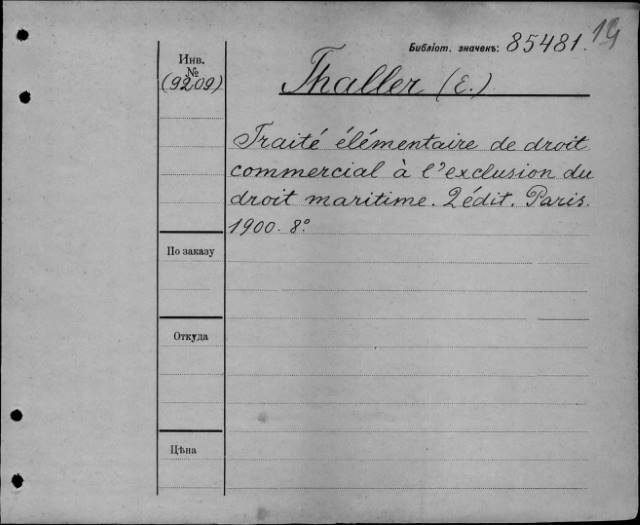 Библіот. значекъ: 85481. 19
Инв.
№
(9209)
Thaller (E.)
Traité élémentaire de droit
commercial à l'exclusion du
droit maritime. 2 édit. Paris.
1900. 8°.
По заказу
Откуда
Цѣна